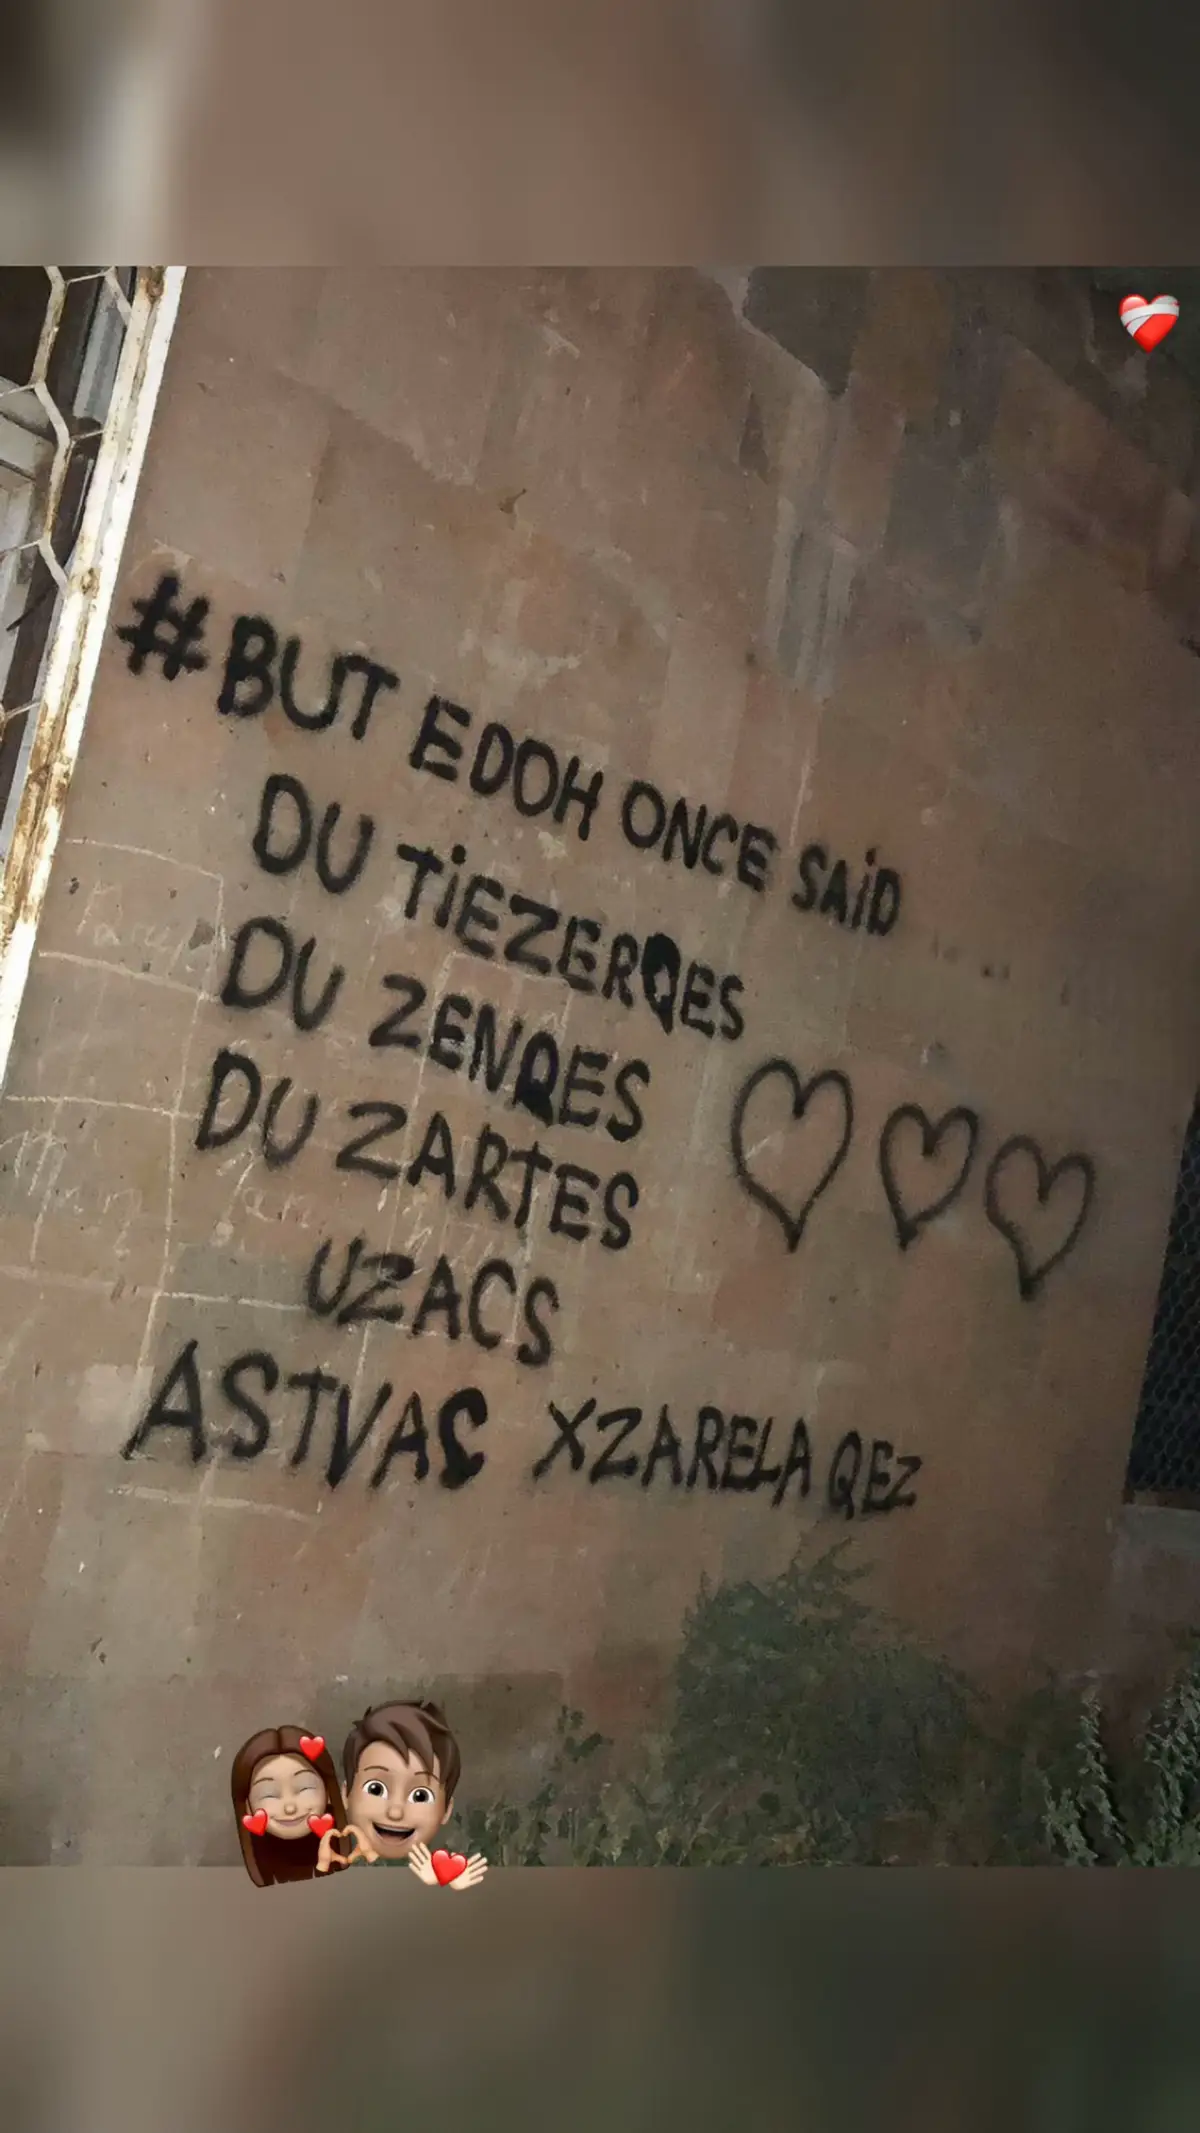 #BUT EDOH ONCE SAiD
DU TiEZERQES
DU ZENQES
DU ZARTES
UZACS
ASTVAC XZARELA QEZ